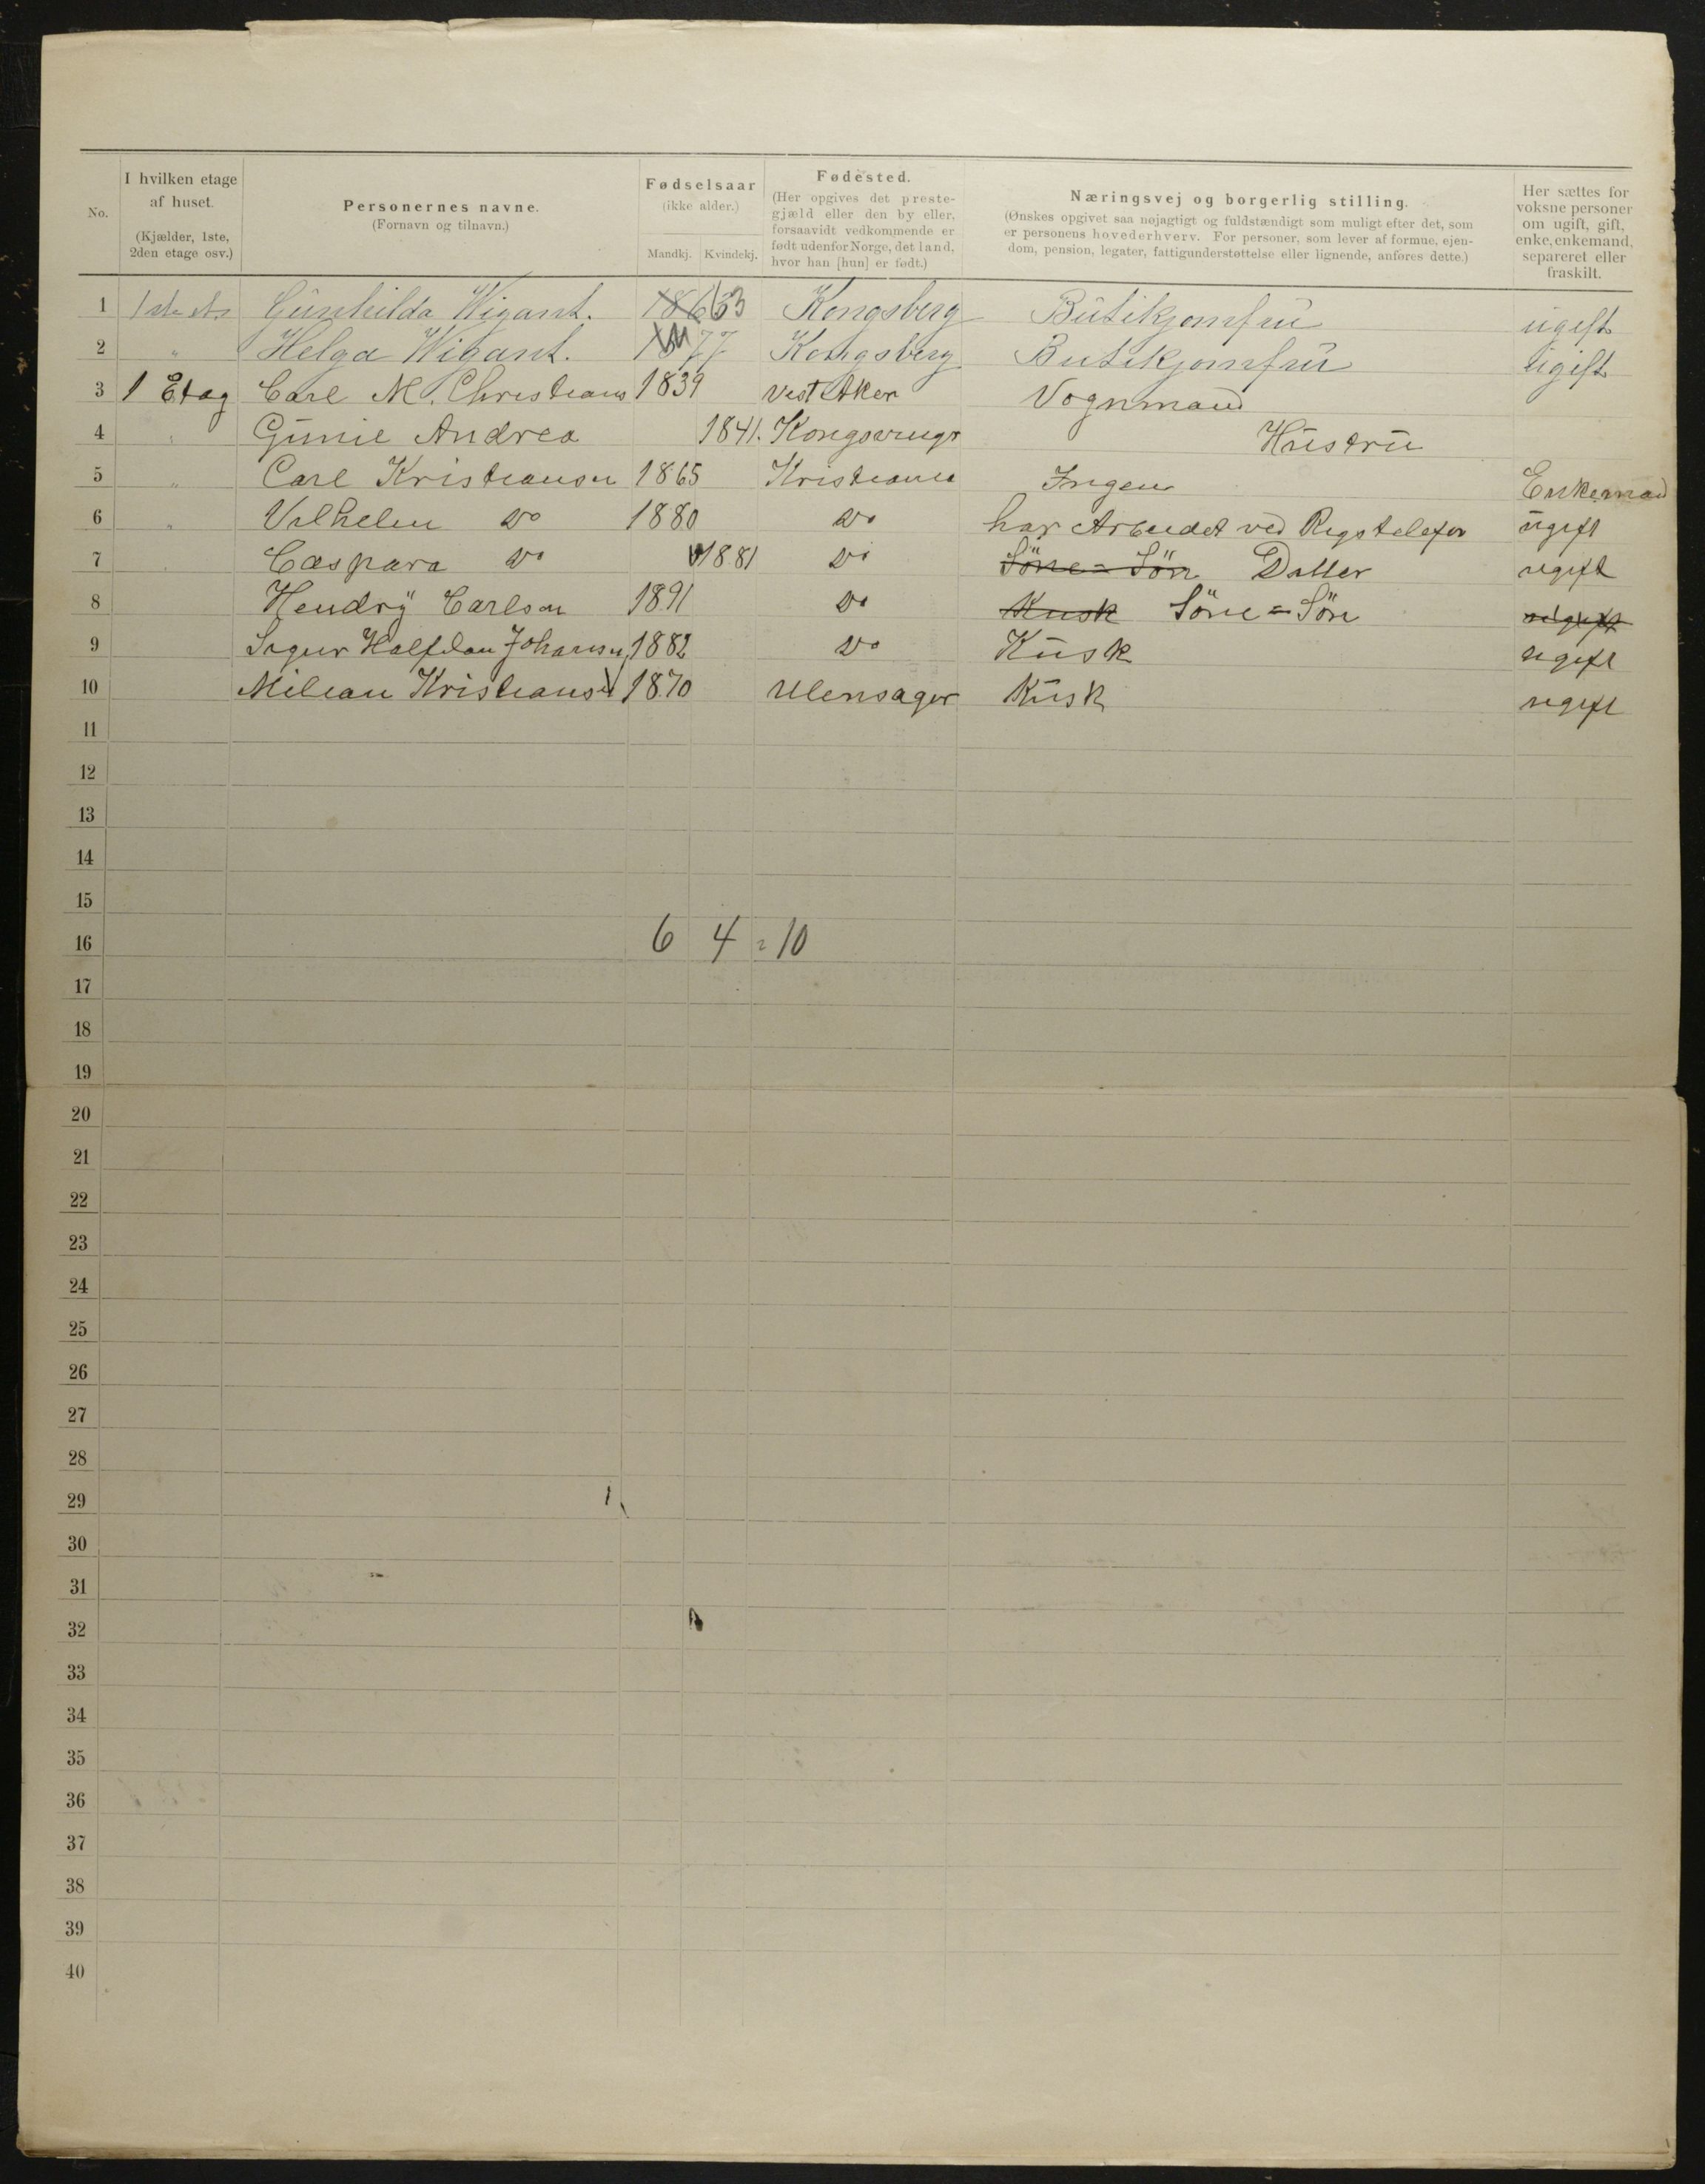 No.
I hvilken etage af huset.
(Kjælder, 1ste, 2den etage osv.)
Personernes navne.
(Fornavn og tilnavn.)
Fødselsaar
(ikke alder.)
Mandkj. Kvindekj.
Fødested.
(Her opgives det prestegjæld eller den by eller, forsaavidt vedkommende er født udenfor Norge, det land, hvor han [hun] er født.)
Næringsvej og borgerlig stilling.
(Ønskes opgivet saa nøjagtigt og fuldstændigt som muligt efter det, som er personens hovederhverv. For personer, som lever af formue, ejendom, pension, legater, fattigunderstøttelse eller lignende, anføres dette.)
Her sættes for voksne personer om ugift, gift, enke, enkemand, separeret eller fraskilt.
1 1ste Gunhilda Wigant. 63 Kongsberg Butikjomfru ugift
2 " Helga Wigant. 77 Kongsberg Butikjomfru ugift
3 1 Etag Carl M. Christians 1839 Vest Aker Vognmand
4 " Gunie Andrea 1841. Hustru
5 " Carl Kristiansn 1865 Kristiania Ingen Enkemand
6 " Vilhelm Do 1880 Do har Arbeidet ved Rigstelefon ugift
7 Caspara Do 1881 Do Söne=Sön Datter ugift
8 Hendry Carlsen 1891 Do Kusk Söne=Sön ugift
9 Sigur Halfdan Johansn 1882 Do Kusk ugift
10 Milian Kristians 1870 Ulensager Kusk ugift
11
12
13
14
15
16 6 4 = 10
17
18
19
20
21
22
23
24
25
26
27
28
29
30
31
32
33
34
35
36
37
38
39
40